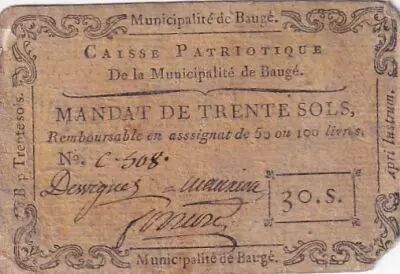 Municipalité de Baugé.
CAISSE PATRIOTIQUE
De la Municipalité de Baugé.
MANDAT DE TRENTE SOLS,
Remboursable en asssignat de 50 ou 100 livres.
No. C-508.
30.S.
Municipalité de Baugé.
B p Trente sols.